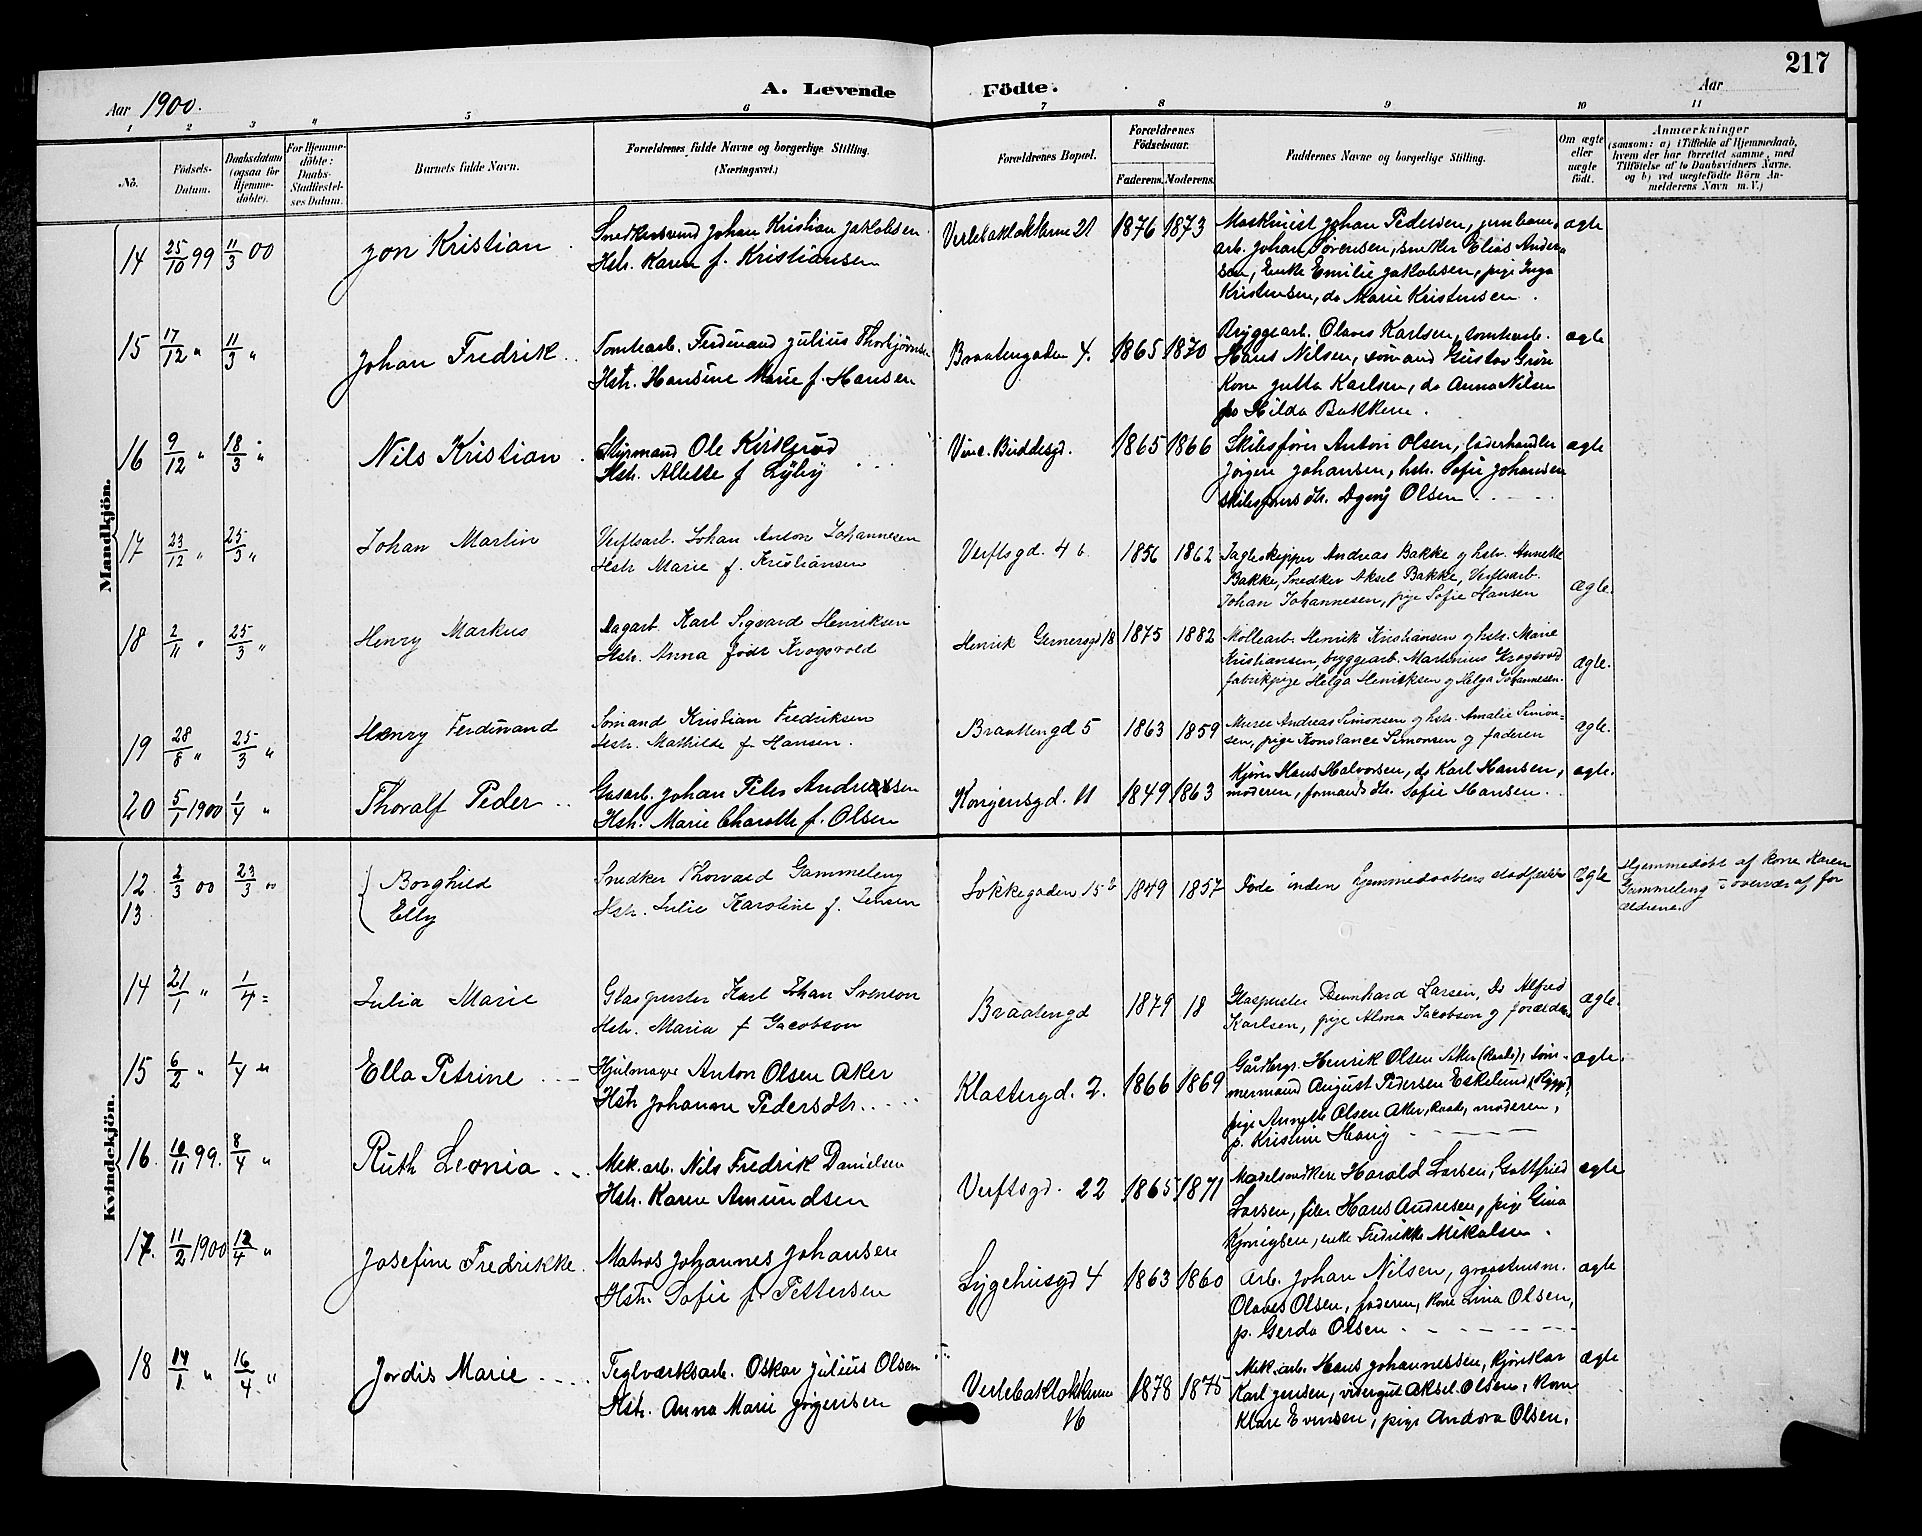 217
Aar 1900.
A. Levende Födte.
Aar
1 2 3 4 5 6 7 8 9 10 11
No.
Födsels-
Datum.
Daabsdatum
(ogsaa for
Hjemme-
döbte).
For Hjemme-
döbte:
Daabs-
Stadfæstel-
ses Datum.
Barnets fulde Navn.
Forældrenes fulde Navne og borgerlige Stilling.
(Næringsvei.)
Forældrenes Bopæl.
Forældrenes
Födselsaar.
Faderens. Moderens.
Faddernes Navne og borgerlige Stilling.
Om ægte
eller
uægte
födt.
Anmærkninger
(saasom: a) i Tilfælde af Hjemmedaab,
hvem der har forrettet samme, med
Tilföielse af to Daabsvidners Navne.
og b) ved uægtefödte Börn An-
melderens Navn m. V.)
Mandkjön.
14 25/10 99 11/3 00 Jon Kristian
Snedkersvend Johan Kristian Jakobsen
Hstr. Karen f. Kristiansen
Verlebakløkkerne 21 1876 1873
Maskinist Johan Pedersen, jernbane
arb. Johan Sørensen, snekker Elias Ander
sen, Enke Emilie Jakobsen, pige Inga
Kristensen, do Marie Kristensen.
ægte
15 17/12 " 11/3 " Johan Fredrik
Tomtearb. Ferdinand Julius Thorbjørnsen
Hstr. Hansine Marie f. Hansen
Braatengaden 4. 1865 1870
Bryggearb. Olaves Karlsen, tomtearb.
Hans Nilsen, sømand Gustav Grøn
Kone Jutta Karlsen, do Anna Nilsen
Hilda Bakken.
ægte
16 9/12 " 18/3 " Nils Kristian
Styrmand Ole Kirkerød
Hstr. Allette f. Lyby
Vinc. Buddesgd. 1865 1866
Skibsfører Anton Olsen, læderhandler
Jørgen Johansen, hstr. Sofie Johansen
skibsførers dtr. Dagny Olsen
ægte
17 23/12 " 25/3 " Johan Martin
Verftsarb. Johan Anton Johannesen
Hstr Marie f. Kristiansen
Verftsgd. 4 b. 1856 1862
Jagtskipper Andreas Bakke og hstr. Annette
Bakke, Snedker Aksel Bakke, Verftsarb.
Johan Johannesen, pige Sofie Hansen
Ægte.
18 2/11 " 25/3 " Henry Markus
Dagarb. Karl Sigvard Henriksen
Hstr. Anna født Krogsvold
Henrik Gernersgd 18 1875 1882
Møllearb. Henrik Kristiansen og hstr. Marie
Kristiansen, bryggearb. Martinius Krogsvold
fabrikpige Helga Henriksen og Helga Johannesen.
ægte.
19 28/8 " 25/3 " Henry Ferdinand
Sømand Kristian Fredriksen
Hstr. Mathilde f. Hansen.
Braatengd 5 1863 1859
Murer Andreas Simonsen og hstr. Amalie Simon-
sen, pige Konstance Simonsen og faderen
ægte.
20 5/1 1900 1/4 " Thoralf Peder
Gasarb. Johan Peter Andreassen
Hstr. Marie Charlotte f. Olsen
Kongensgd. 11 1849 1863
Kjører Hans Halvorsen, do Karl Hansen,
moderen, formands dtr. Sofie Hansen.
ægte.
Kvindekjön.
12 13 2/3 00 23/3 00 Borghild
Elly
Snedker Thorvald Gammeleng
Hstr. Julie Karoline f. Jensen
Løkkegaden 15 b 1849 1857
Døde inden hjemmedaabens stadfæstelse
Ægte
Hjemmedøbt af kone Karen
Gammeleng i overvær af for
ældrene.
14 21/1 " 1/4 = Julia Marie
Glaspuster Karl Johan Svenson
Hstr. Maria f. Jacobson
Braatengd 1879 18
Glaspuster Bernhard Larsen, Do Alfred
Karlsen, pige Alma Jacobson og forældrene
ægte.
15 6/2 " 1/4 " Ella Petrine
Hjulmager Anton Olsen Aker
Hstr Johanne Pedersdtr.
Klostergd. 2. 1866 1869
Gårdbrgr. Henrik Olsen Aker (Raade), tøm-
mermand August Pedersen Eskelund, Rygge,
pige Annette Olsen Aker, Raade, moderen,
p. Kristine Haug
ægte.
16. 10/11 99. 8/4 " Ruth Leonia
Mek. arb. Nils Fredrik Danielsen
Hstr. Karen Amundsen
Verftsgd. 22 1865 1871
Modelsnedkere Harald Larsen, Gottfried
Larsen, filer Hans Andresen, pige Gina
enke Fredrikke Mikalsen.
ægte
17. 11/2 1900 12/4 " Josefine Fredrikke.
Matros Johannes Johansen
Hstr. Sofie f. Pettersen
Sygehusgd 4 1863 1860
Arb. Johan Nilsen, graastensm.
Olaves Olsen, faderen, kone Lina Olsen,
p. Gerda Olsen
ægte
18 14/1 " 16/4 " Jordis Marie
Teglværksarb. Oskar Julius Olsen
Hstr. Anna Marie Jørgensen
Verlebakløkkerne
16
1878 1875
Mek. arb. Hans Johannessen, kjørekar
Karl Jensen, visergut Aksel Olsen, kone
Klare Evensen, pige Andora Olsen.
ægte